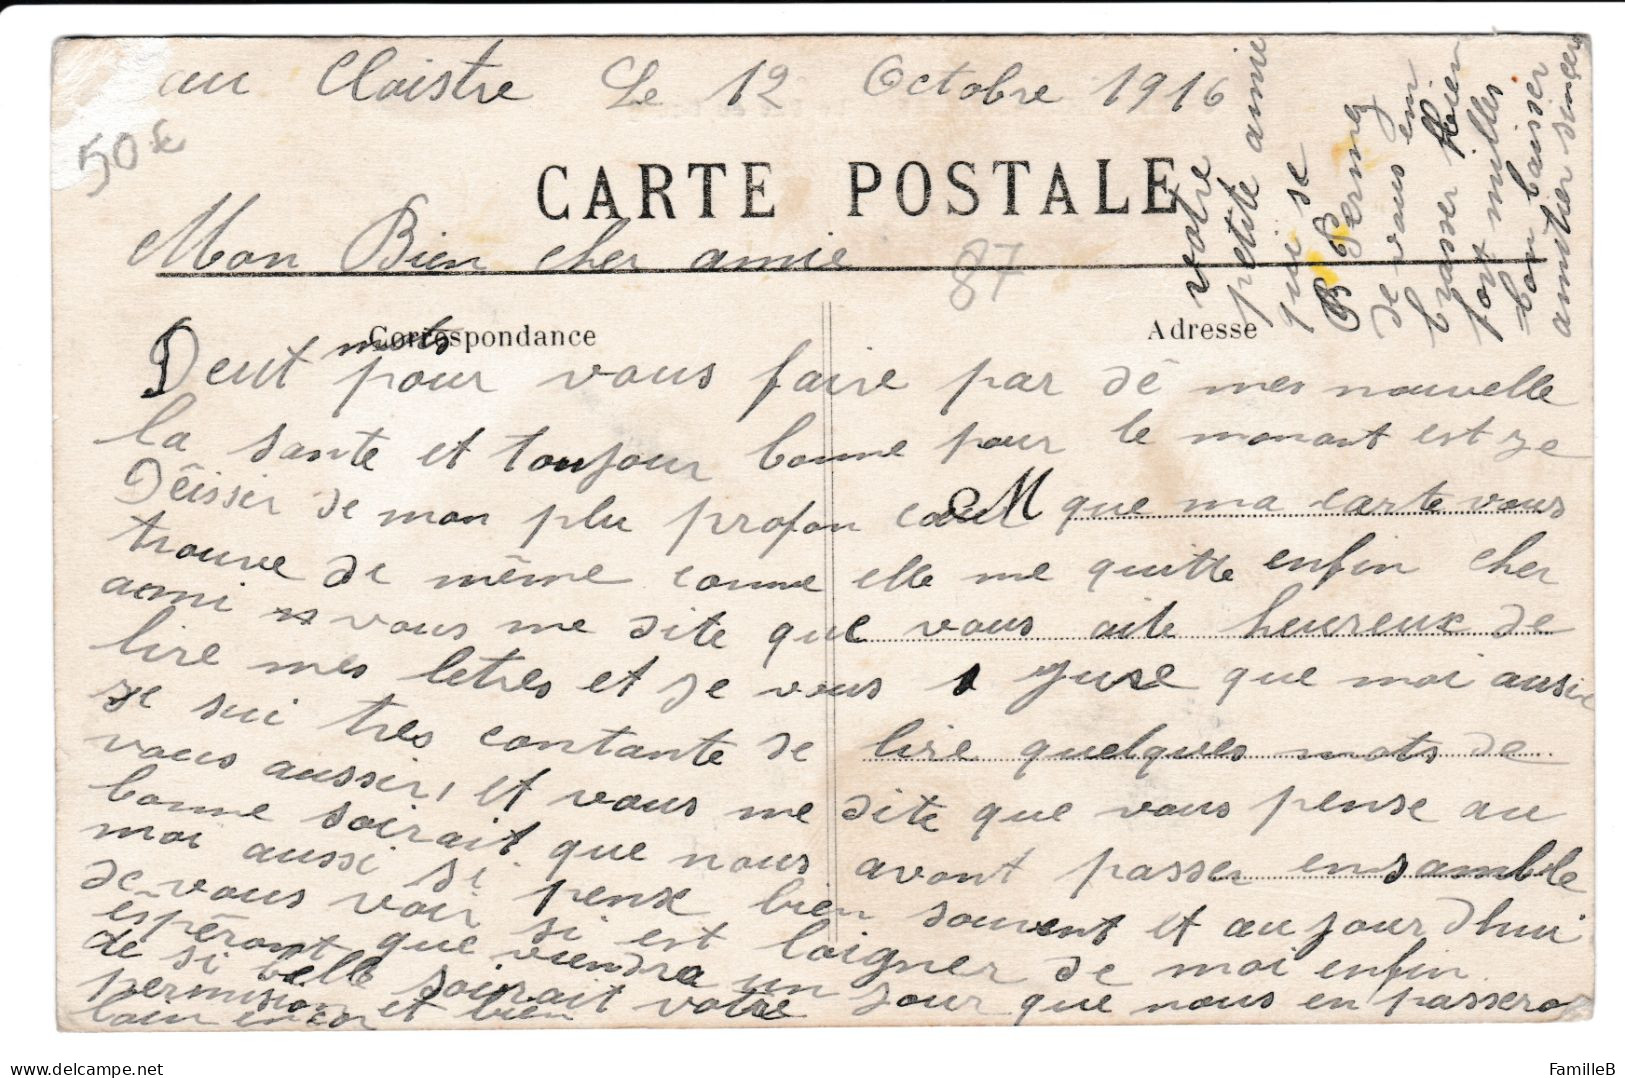 au Cloistre Le 12 Octobre 1916
50 fc
CARTE POSTALE
Mon Bien cher amie
87
Correspondance
Adresse
Deut mots pour vous faire par dé mes nouvelle
la sante et toujour bonne pour le monant est je
Dêisser de mon plu profon coeur que ma carte vous
trouve de même conme elle me quitte enfin cher
ami vous me dite que vous aite heureux de
lire mes letres et je vous juse que moi ausix
je sui tres contante de lire quelques mots de
vous aussir, et vous me dite que vous pense au
bonne soirait que nous avont passer ensamble
moi aussi si pense bien souvent et au jour dhui
de vous voir si est loigner de moi enfin
êspéront que viendra un jour que nous en passeron
de si belle soirait votre
permision et bien
loin encor
votre
petite amie
qui se
Permez
de vous em
brasser Bien
fort milles
bon baisser
amitier sincer
FamilleB